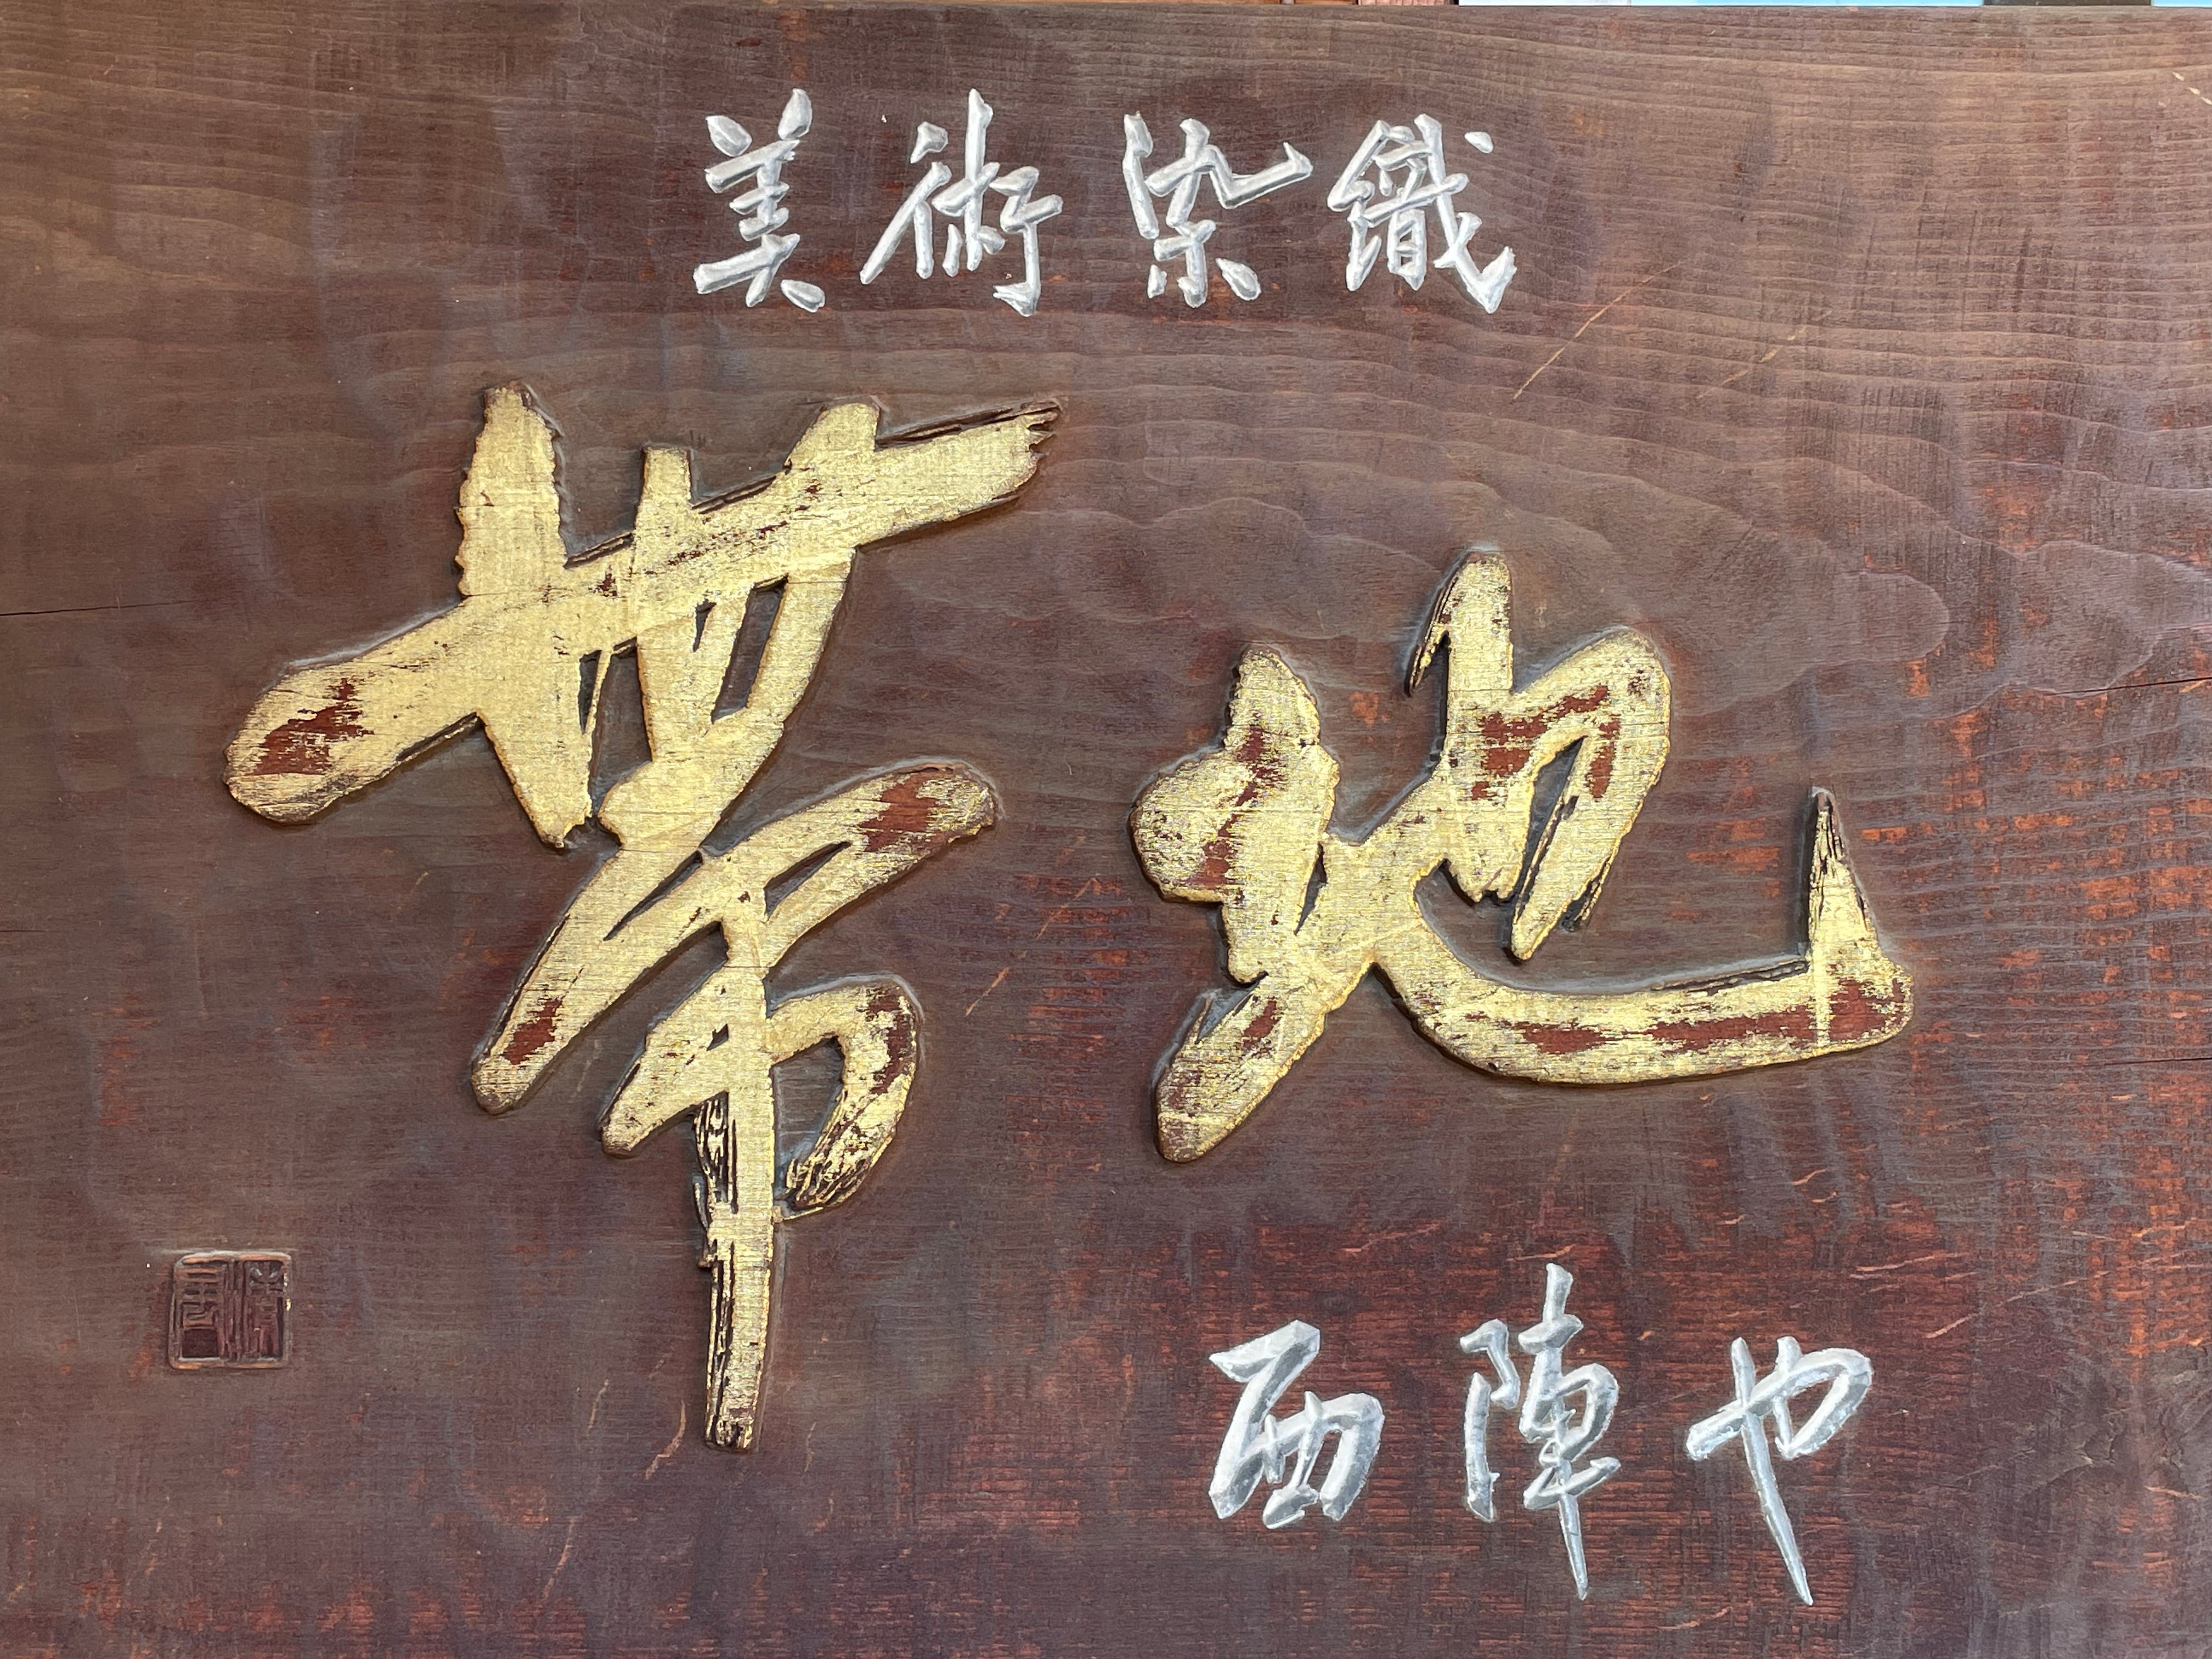 美術染織
帯地
西陣也